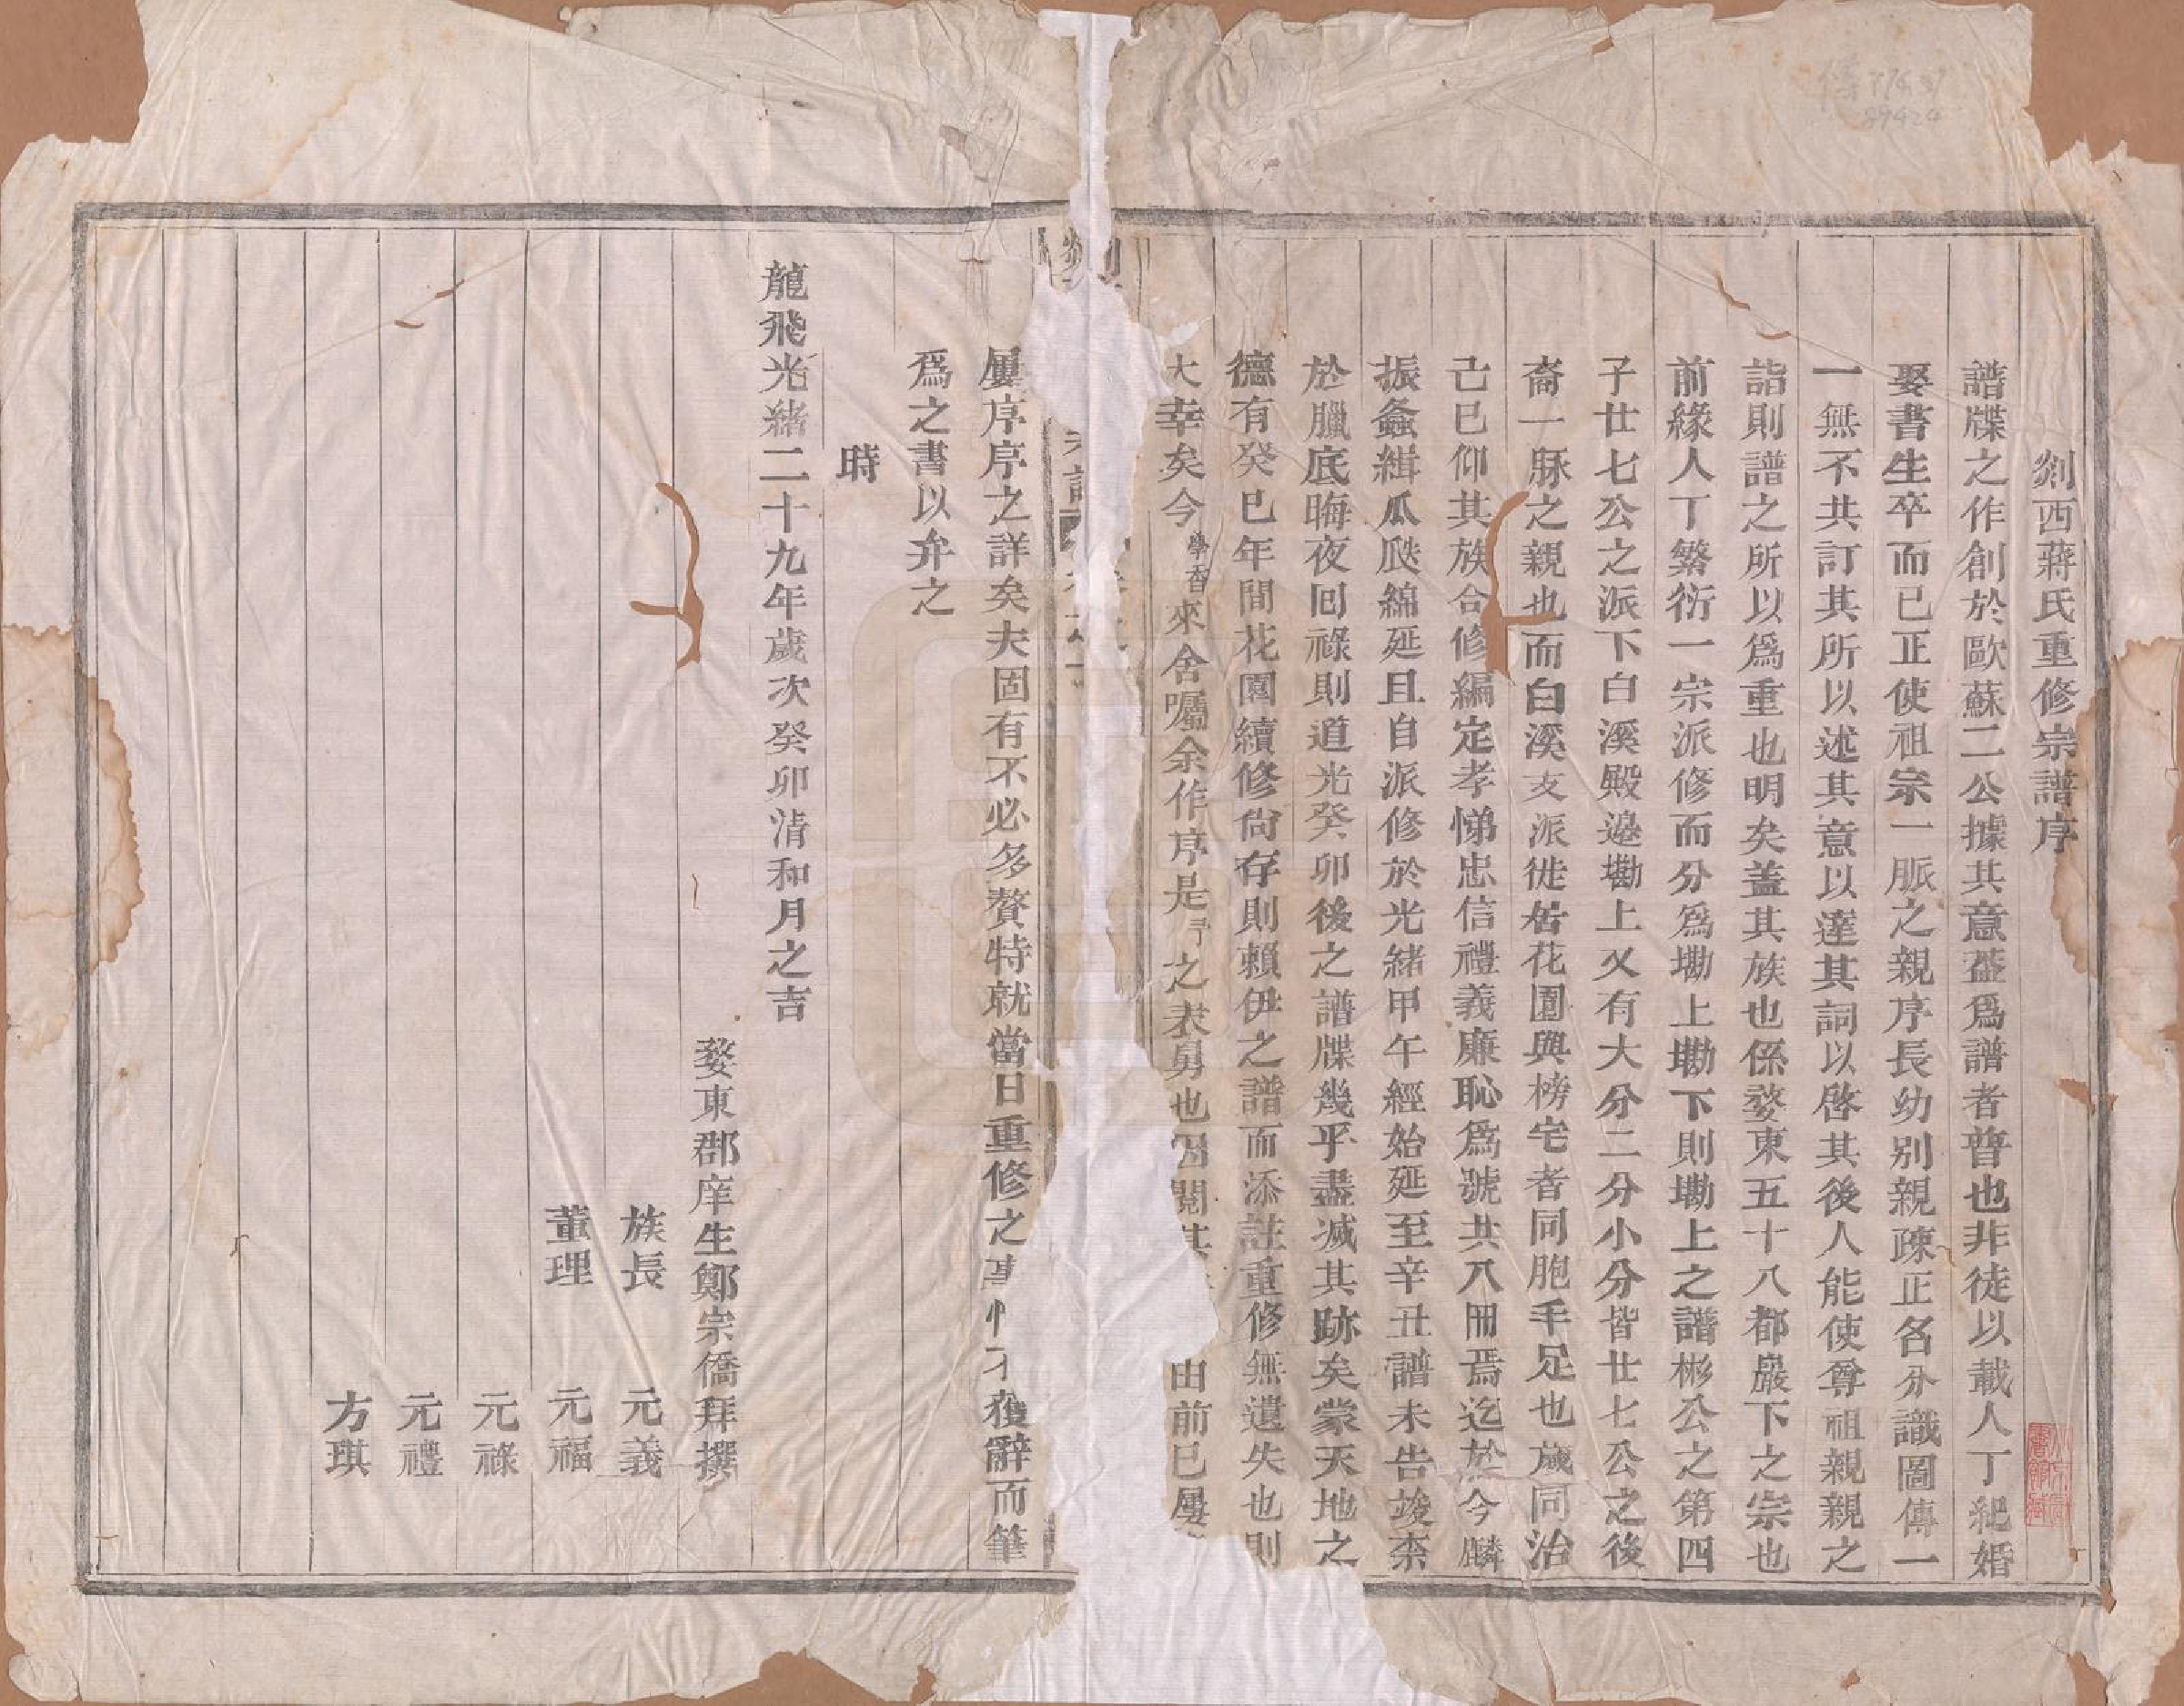 剡西蔣氏重修宗譜序
譜牒之作創於歐蘇二公據其意葢爲譜者普也非徒以載人丁紀婚
娶書生卒而已正使祖宗一脈之親序長幼別親疎正名分識圖傳一
一無不共訂其所以述其意以達其詞以啓其後人能使尊祖親親之
詣則譜之所以爲重也明矣蓋其族也係婺東五十八都巖下之宗也
前緣人丁繁衍一宗派修而分爲墈上墈下則墈上之譜彬公之第四
子廿七公之派下白溪殿邉墈上又有大分二分小分皆廿七公之後
裔一脉之親也而白溪支派徙居花園與榜宅者同胞手足也歲同治
己巳仰其族合修編定孝悌忠信禮義廉恥爲號共八冊焉迄於今麟
振螽緝瓜瓞綿延且自派修於光緒甲午經始延至辛丑譜未告竣柰
於臘底晦夜囘祿則道光癸卯後之譜牒幾乎盡滅其跡矣蒙天地之
德有癸巳年間花園續修尙存則賴伊之譜而添註重修無遺失也則
大幸矣今學香來舍囑余作序是予之表舅也因閱其由前已屢
屢序序之詳矣夫固有不必多贅特就當日重修之事不獲辭而筆
爲之書以弁之
時
龍飛光緒二十九年歲次癸卯清和月之吉
婺東郡庠生鄭宗僑拜撰
族長 元義
董理 元福
元祿
元禮
方琪